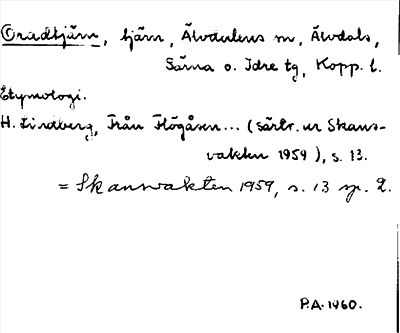 Oradtjärn, tjärn, Älvdalens sn, Älvdals,
Särna o. Idre tg, Kopp. l.
Etymologi.
H. Lindberg, Från Högåsen... (särtr. ur Skans-
vakten 1959), s. 13.
= Skansvakten 1959, s. 13 sp. 2.
P.A. 1960.